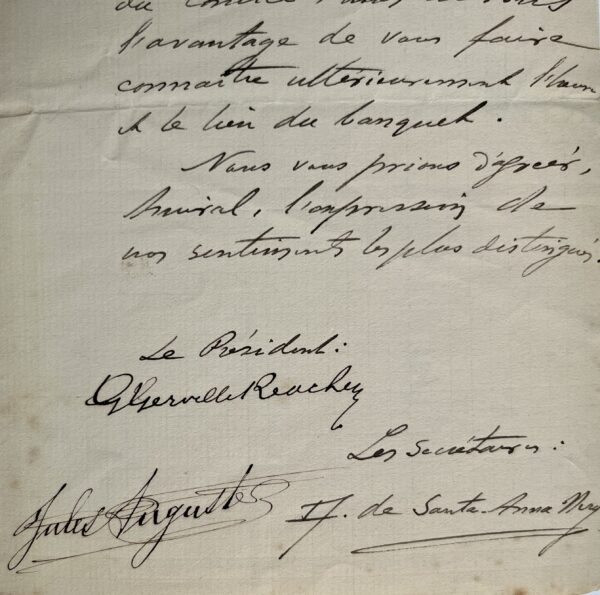 l'avantage de vous faire
connaître ultérieurement l'heure
et le lieu du banquet.
Nous vous prions d'agréer,
Amiral, l'expression de
nos sentiments les plus distingués.
Le Président:
GGerville Reache
Les secrétaires:
Jules Auguste
F. de Santa-Anna Nery